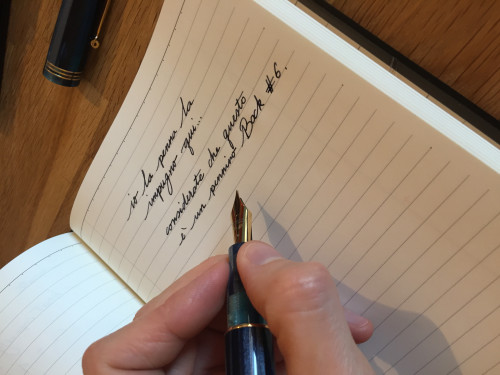 io la penna la
impugno qui...
considerate che questo
è un pennino Bock #6.